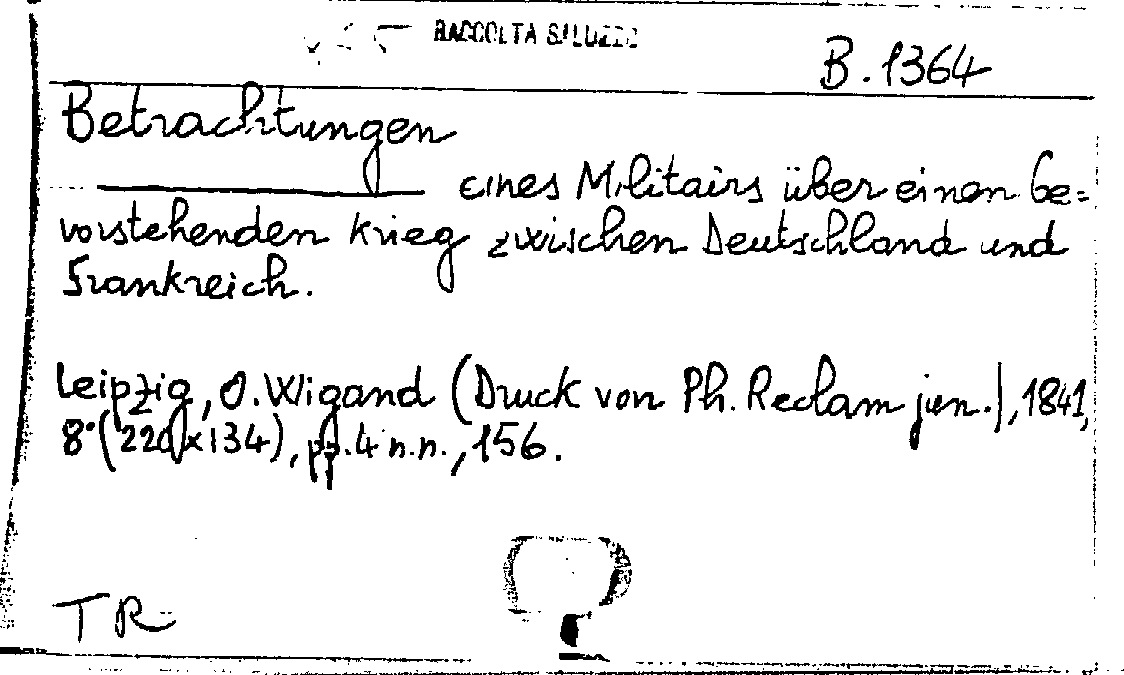 RACCOLTA SALUZZO
B. 1364
Betrachtungen
eines Militairs über einen be=
vorstehenden Krieg zwischen Deutschland und
Frankreich.
Leipzig, O. Wigand (Druck von Ph. Reclam jun.), 1841,
8° (220x134), pp. 4 n.n., 156.
TR